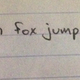 fox jump